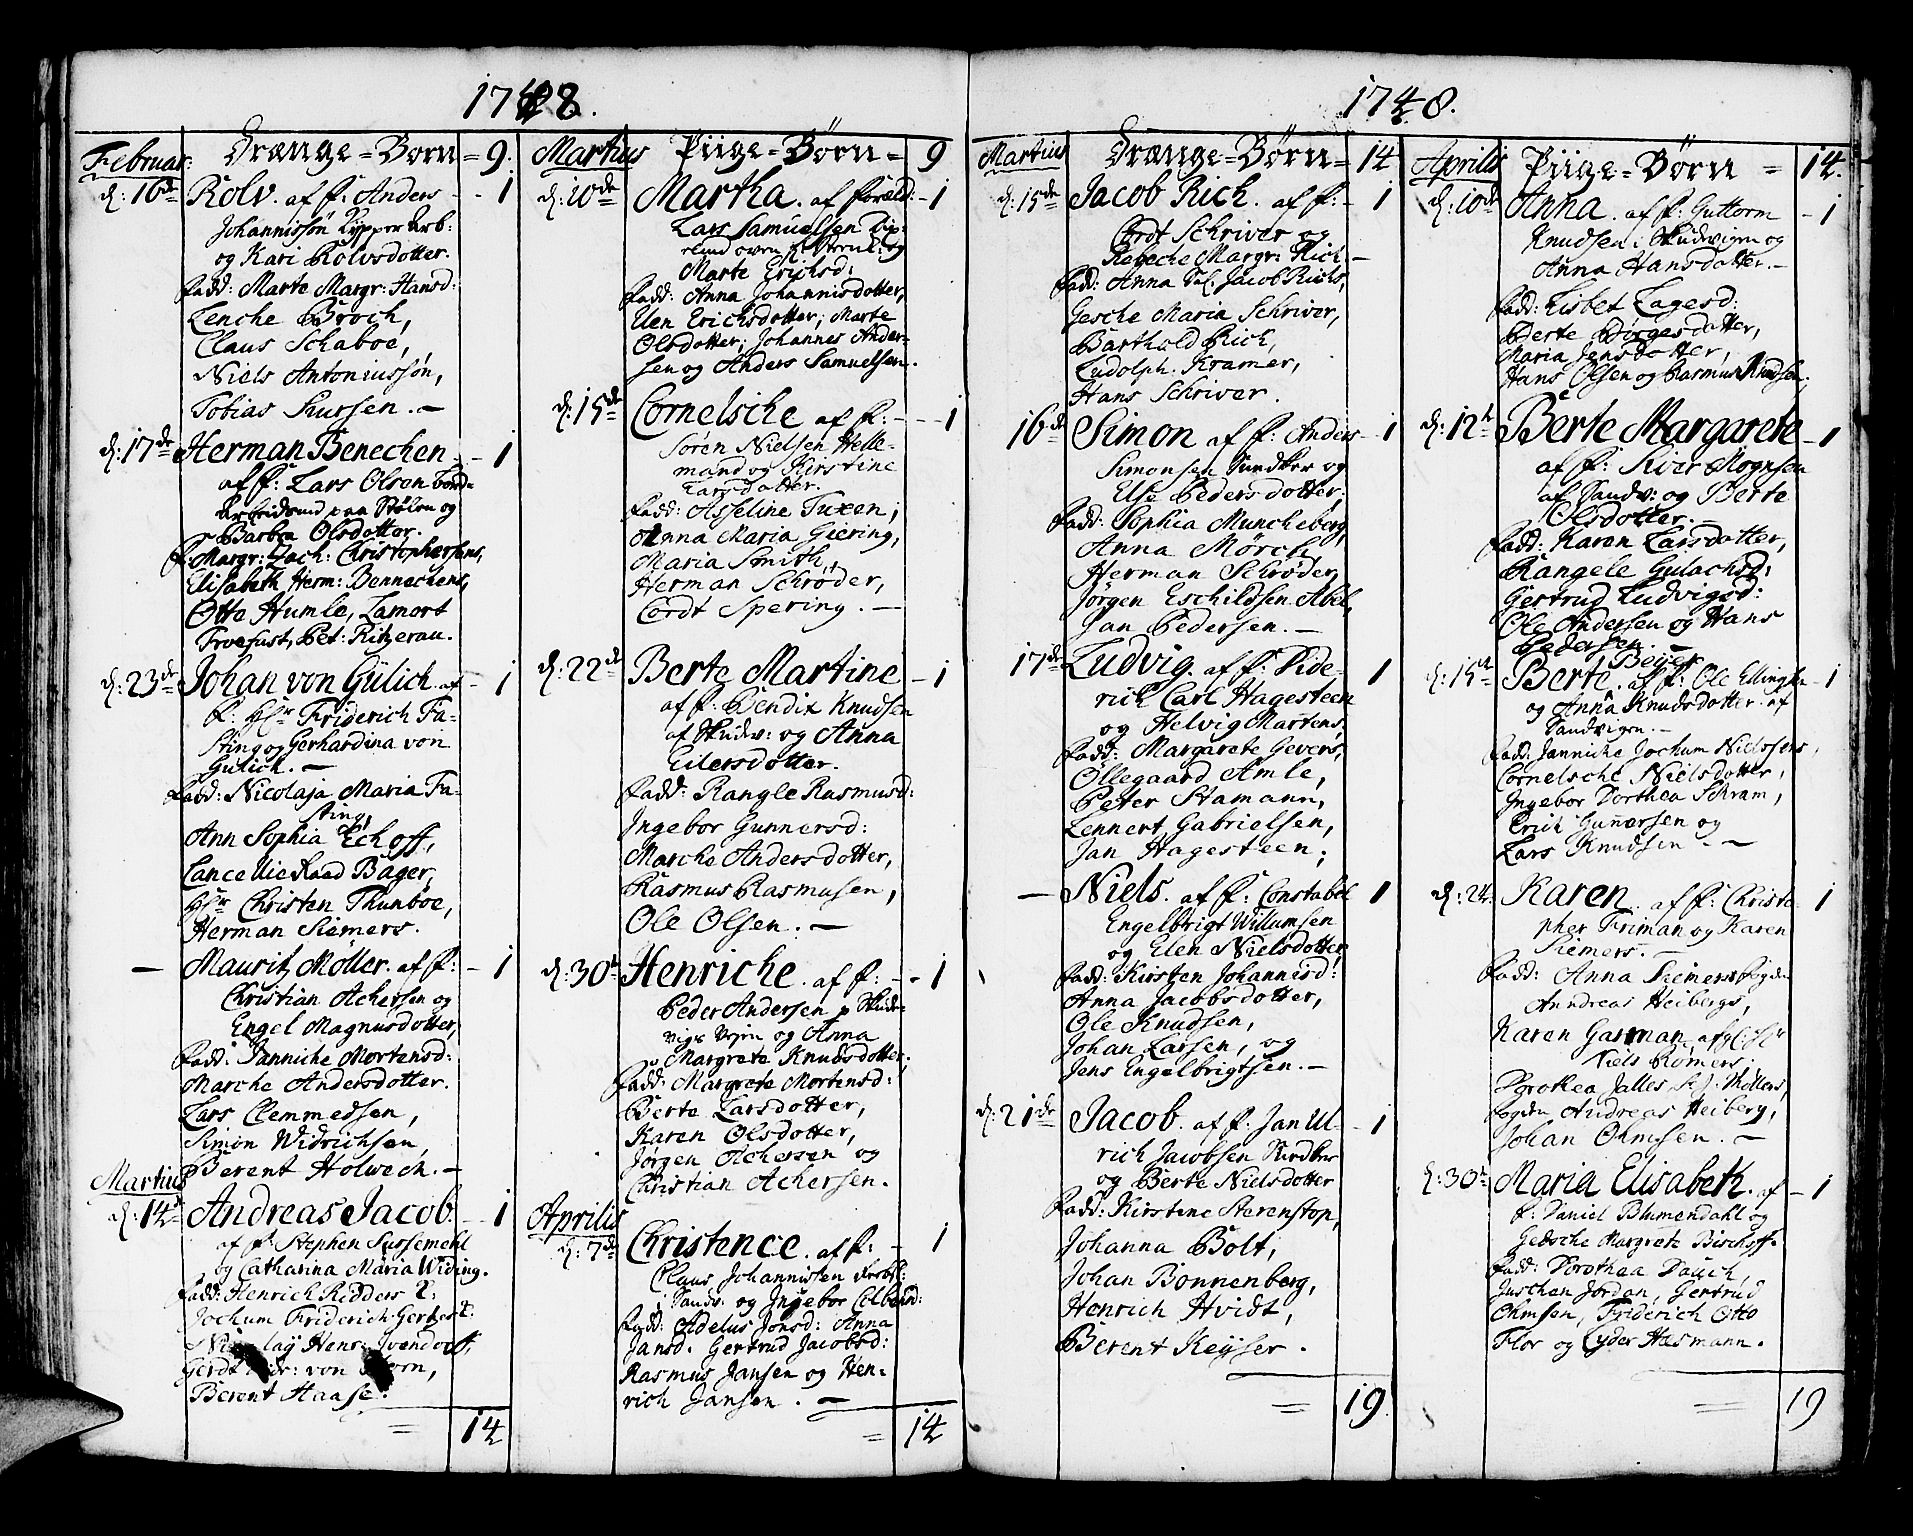 1748.
Februar: Drænge=Børn = 9.
d: 16de Rolv. af f: Anders - 1
Johannissøn Kypper Arb:
og Kari Rolvsdotter.
fadd: Marte Margr: Hansd:
Lenche Broch,
Claus Schaboe,
Niels Antoniussøn,
Tobias Lursen. —
d: 17de Herman Benechen. - 1
af f: Lars Olsen
Arbeidsmd paa Stølen og
Barbra Olsdotter.
f: Margr: Zach: Christophersens,
Elisabeth Herm: Bennechens,
Otto Humle, Lamort
Troefast, Pet: Ritzerau.
d: 23de Johan von Gülich. af - 1
f: Hr Friderich Fa-
sting og Gerhardina von
Gülich. —
fadd: Nicolaja Maria Fa-
sting,
Ann Sophia Echoff,
Cancellie Raad Bager,
Hr Christen Thunboe,
Herman Siemers.
— Mauritz Møller. af f: - 1
Christian Achersen og
Engel Magnusdotter,
fadd: Janniche Mortensd:
Marche Andersdotter.
Lars Clemmedsen,
Simon Widrichsen,
Berent Holwech. —
Martius
d: 14de Andreas Jacob. - 1
af f: Stephen Sussemehl
og Catharina Maria Widing.
fadd: Henrich Ridders
Jochum Friderich Gerkes
Nicolay Hens: Svendorff,
Gerdt von
Berent Haase.
= 14
Martius Piige=Børn = 9
d: 10de Martha. af foreld: - 1
Lars Samuelsen
og
Marte Erichsd:
fadd: Anna Johannisdotter,
Elen Erichsdotter, Marte
Olsdotter, Johannes Ander-
sen og Anders Samuelsen.
d: 15de Cornelsche af f: - 1
Søren Nielsen Helle-
mand og Kirstine
Larsdotter.
fadd: Asseline Tuxen,
Anna Maria Giering,
Maria Smith,
Herman Schrøder,
Cordt Spering. —
d: 22de Berte Martine - 1
af f: Bendix Knudsen
af Skudv: og Anna
Eilersdotter.
fadd: Rangle Rasmusd:
Ingebor Gunnersd:
Marche Andersdotter,
Rasmus Rasmusen,
Ole Olsen. —
d: 30t Henriche. af f: - 1
Peder Andersen p Skude-
vigs Vejen og Anna
Margrete Knudsdotter,
fadd: Margrete Mortensd:
Berte Larsdotter,
Karen Olsdotter,
Jørgen Achersen og
Christian Achersen.
Aprilis
d: 7de Christence. af f: - 1
Claus Johannissen
i Sandv: og Ingebor Colbensd:
fadd: Adelus Jonsd: Anna
Jansd. Gertrud Jacobsd:
Rasmus Jansen og Hen-
rich Jansen. —
= 14
1748.
Martius Drænge=Børn = 14
d: 15de Jacob Rich. af f: - 1
Cordt Schriver og
Rebeche Margr: Rich. —
fadd: Anna Sal. Jacob Richs,
Gesche Maria Schriver,
Barthold Rich,
Ludolph. Kramer,
Hans Schriver.
16de Simon af f: Anders - 1
Simonsen Sundker og
Else Pedersdotter.
fadd: Sophia Muncheberg,
Anna Mörch,
Herman Schrøder,
Jørgen Eschildsen Abel,
Jan Pedersen. —
17de Ludvig. af f: Dide- 1
rich Carl Hagesteen
og Helvig Martens,
fadd: Margarete Gevers,
Ollegaard Amle,
Peter Hamann,
Lennert Gabrielsen,
Jan Hagesteen,
— Niels. af f: Constabel 1
Engelbrigt Willumsen
og Elen Nielsdotter,
fadd: Kirsten Johannisd:
Anna Jacobsdotter,
Ole Knudsen,
Johan Larsen, og
Jens Engelbrigtsen. —
d: 21de Jacob. af f: Jan Ul- - 1
rich Jacobsen
og Berte Nielsdotter
fadd: Kirstine Sterenstop,
Johanna Bolt,
Johan Bonnenberg,
Henrich Hvidt,
Berent Keyser.
= 19
Aprilis Piige=Børn = 14.
d: 10de Anna. af f: Guttorm - 1
Knudsen i Skudvigen og
Anna Hansdatter. —
fadd: Lisbet Lagesd:
Berte Birgesdatter,
Maria Jensdotter,
Hans Olsen og Rasmus Knudsen,
d: 12t Berte Margarete - 1
af f: Siver Mognsen
af Sandv: og Berte
Olsdotter.
fadd: Karen Larsdatter,
Rangele Gulachsd:
Gertrud Ludvigsd:
Ole Andersen og Hans
Pedersen. —
Beyer
d: 15de Berte. af f: Ole Elling - 1
og Anna Knudsdotter. af
Sandvigen. —
fadd: Janniche Jochum Nielssens,
Cornelsche Nielsdotter,
Ingebor Dorthea Schram,
Erich Gunnersen og
Lars Knudsen. —
d: 24. Karen. af f: Christo- 1
pher Friman og Karen
Siemers. —
fadd: Anna Siemers
Anndreas Heibergs,
Karen Garman,
Niels Rømers,
Dorothea Jalles, Møllers,
fogden Andreas Heiberg,
Johan Ohmsen. —
d: 30t Maria Elisabeth. af - 1
f: Daniel Blumendahl og
Gedsche Margrete Bischoff.
fadd: Dorothea Dauch,
Juschen Jordan, Gertrud
Ohmsen, Friderich Otto
Flor og Lyder Hasmann.
= 19